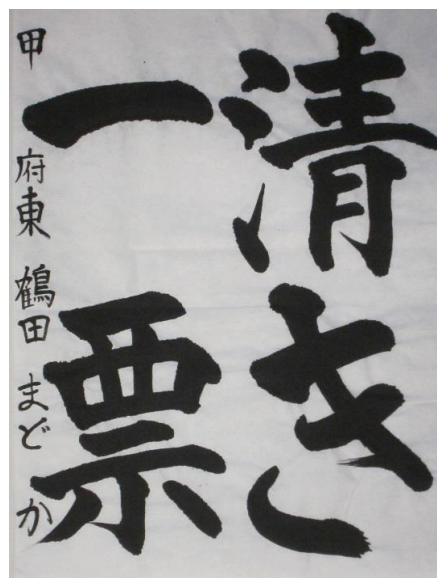 清き
一票
甲府東 鶴田 まどか